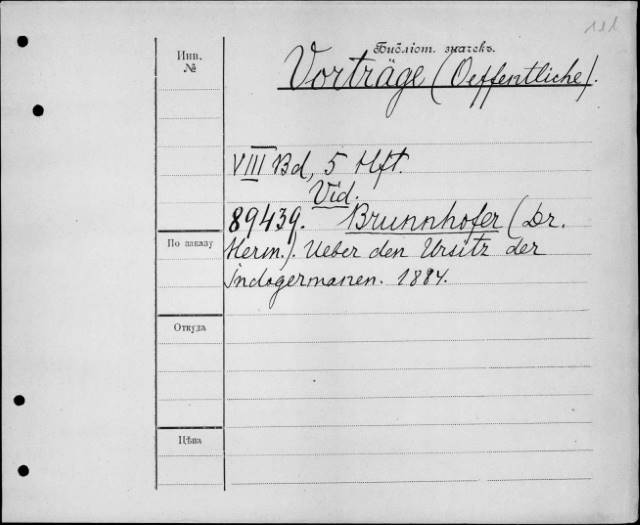 181
Библіот. значекъ.
Инв.
№
Vorträge (Oeffentliche).
VIII Bd, 5 Hft.
Vid.
89439. Brunnhofer (Dr.
По заказу
Herm.). Ueber den Ursitz der
Indogermanen. 1884.
Откуда
Цѣна